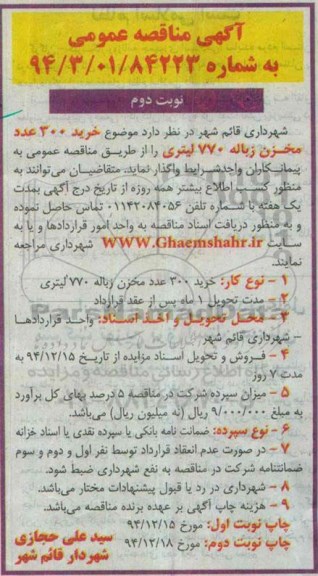 آگهی مناقصه عمومی
به شماره ۹۴/۳/۰۱/۸۴۲۲۳
نوبت دوم
شهرداری قائم شهر در نظر دارد موضوع خرید ۳۰۰ عدد
مخزن زباله ۷۷۰ لیتری را از طریق مناقصه عمومی به
پیمانکاران واجدشرایط واگذار نماید. متقاضیان می‌توانند به
منظور کسب اطلاع بیشتر همه روزه از تاریخ درج آگهی بمدت
یک هفته با شماره تلفن ۰۱۱۴۲۰۸۴۰۵۶ تماس حاصل نموده
و به منظور دریافت اسناد مناقصه به واحد امور قراردادها و یا به
سایت WWW.Ghaemshahr.ir شهرداری مراجعه
نمایند.
۱ - نوع کار: خرید ۳۰۰ عدد مخزن زباله ۷۷۰ لیتری
۲ - مدت تحویل ۱ ماه پس از عقد قرارداد
۳ - محل تحویل و اخذ اسناد: واحد قراردادها
- شهرداری قائم شهر
۴ - فروش و تحویل اسناد مزایده از تاریخ ۹۴/۱۲/۱۵ به
مدت ۷ روز
۵ - میزان سپرده شرکت در مناقصه ۵ درصد بهای کل برآورد
به مبلغ ۹/۰۰۰/۰۰۰ ریال (نه میلیون ریال) می‌باشد.
۶ - نوع سپرده: ضمانت نامه بانکی یا سپرده نقدی یا اسناد خزانه
۷ - در صورت عدم انعقاد قرارداد توسط نفر اول و دوم و سوم
ضمانتنامه شرکت در مناقصه به نفع شهرداری ضبط شود.
۸ - شهرداری در رد یا قبول پیشنهادات مختار می‌باشد.
۹ - هزینه چاپ آگهی بر عهده برنده مناقصه می‌باشد.
چاپ نوبت اول: مورخ ۹۴/۱۲/۱۵
چاپ نوبت دوم: مورخ ۹۴/۱۲/۱۸
سید علی حجازی
شهردار قائم شهر